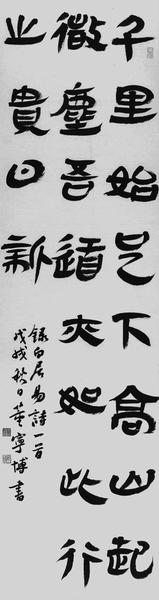 千里始足下高山起
微塵吾道亦如此行
之貴日新
錄白居易詩一首
戊戌秋日董寧博書